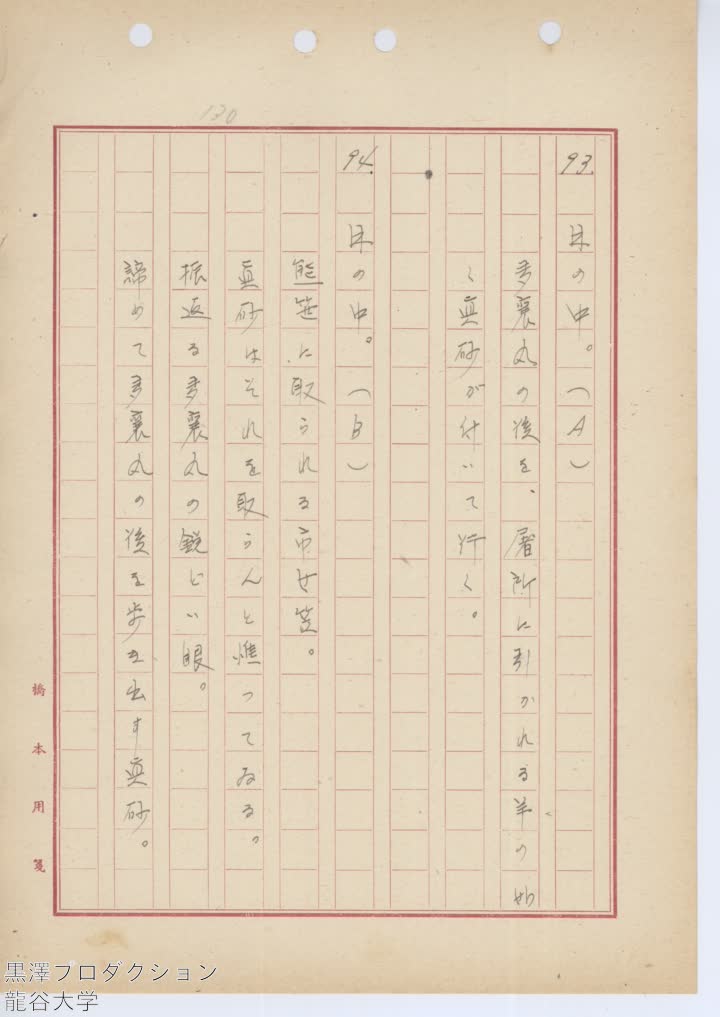 130
93. の中。(A)
多襄丸の後を、屠所に引かれる羊の如
く眞砂が付いて行く。
94. の中。(B)
熊笹に取られる市女笠。
眞砂はそれを取らんと憔つてゐる。
振返る多襄丸の鋭どい眼。
諦めて多襄丸の後を歩き出す眞砂。
橋本用箋
黒澤プロダクション
龍谷大学